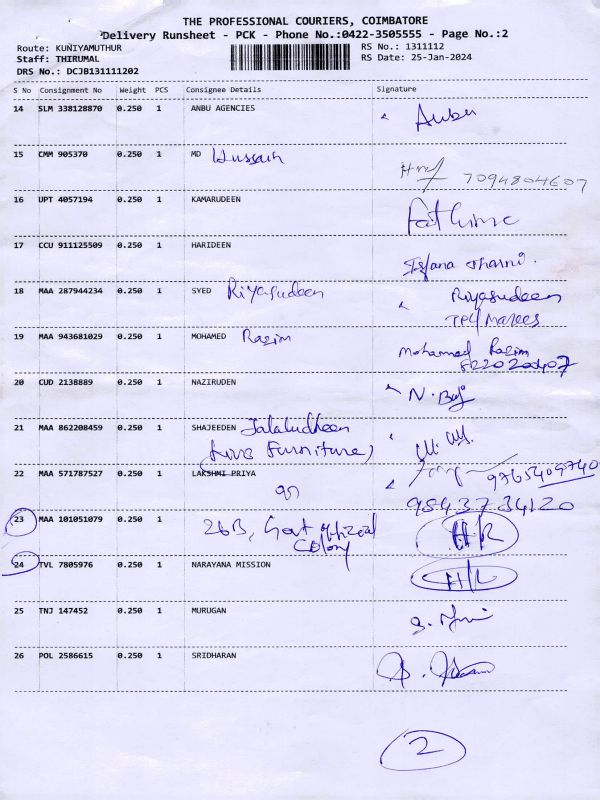 THE PROFESSIONAL COURIERS, COIMBATORE
Delivery Runsheet - PCK - Phone No.:0422-3505555 - Page No.:2
Route: KUNIYAMUTHUR RS No.: 1311112
Staff: THIRUMAL RS Date: 25-Jan-2024
DRS No.: DCJB131111202
S No Consignment No Weight PCS Consignee Details Signature
14 SLM 338128870 0.250 1 ANBU AGENCIES Anbu
15 CMM 905370 0.250 1 MD Hussain
7094804607
16 UPT 4057194 0.250 1 KAMARUDEEN Fathima
17 CCU 911125509 0.250 1 HARIDEEN
18 MAA 287944234 0.250 1 SYED Riyasudeen Riyasudeen
19 MAA 943681029 0.250 1 MOHAMED Rasim Mohamed Rasim
20 CUD 2138889 0.250 1 NAZIRUDEN
21 MAA 862208459 0.250 1 SHAJEEDEN Jalaludheen
Furniture)
22 MAA 571787527 0.250 1 LAKSHMI PRIYA 9765409740
9843734120
23 MAA 101051079 0.250 1 26B, Govt official
Colony
24 TVL 7805976 0.250 1 NARAYANA MISSION
25 TNJ 147452 0.250 1 MURUGAN
26 POL 2586615 0.250 1 SRIDHARAN
2